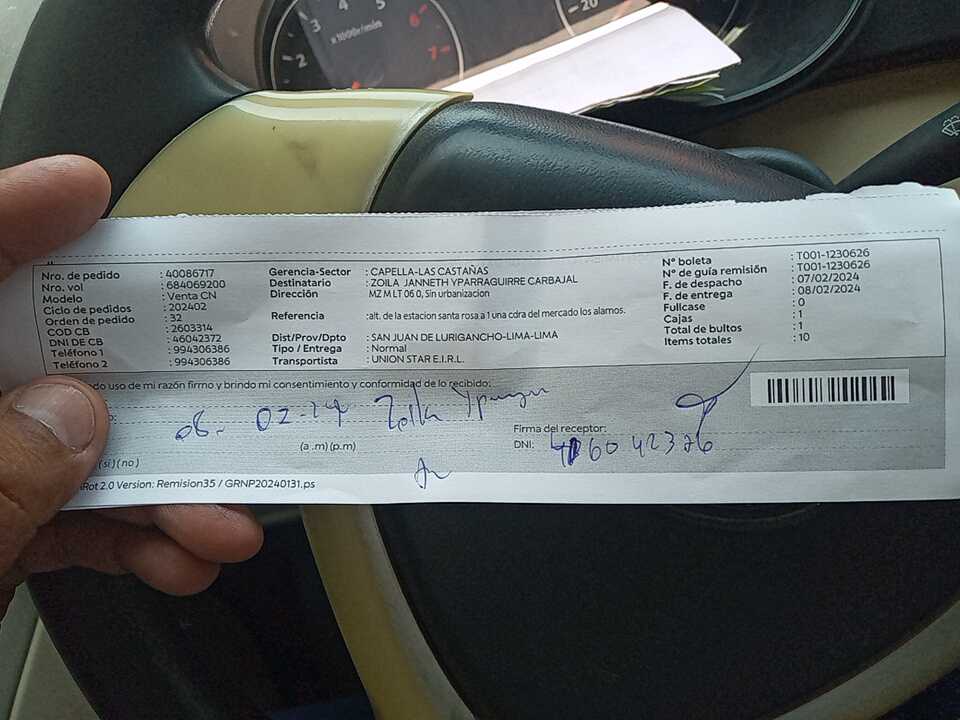 2
3
4
5
6
7
x1000r/min
20
Nro. de pedido : 40086717
Nro. vol : 684069200
Modelo : Venta CN
Ciclo de pedidos : 202402
Orden de pedido : 32
COD CB : 2603314
DNI DE CB : 46042372
Teléfono 1 : 994306386
Teléfono 2 : 994306386
Gerencia-Sector : CAPELLA-LAS CASTAÑAS
Destinatario : ZOILA JANNETH YPARRAGUIRRE CARBAJAL
Dirección MZ M LT 06 0, Sin urbanizacion
Referencia :alt. de la estacion santa rosa a 1 una cdra del mercado los alamos.
Dist/Prov/Dpto : SAN JUAN DE LURIGANCHO-LIMA-LIMA
Tipo / Entrega : Normal
Transportista : UNION STAR E.I.R.L.
N° boleta : T001-1230626
N° de guía remisión : T001-1230626
F. de despacho : 07/02/2024
F. de entrega : 08/02/2024
Fullcase : 0
Cajas : 1
Total de bultos : 1
Items totales : 10
ndo uso de mi razón firmo y brindo mi consentimiento y conformidad de lo recibido:
08. 02-24 Zoila
(a .m) (p.m)
Firma del receptor:
DNI:
(si) (no)
iRot 2.0 Version: Remision35 / GRNP20240131.ps